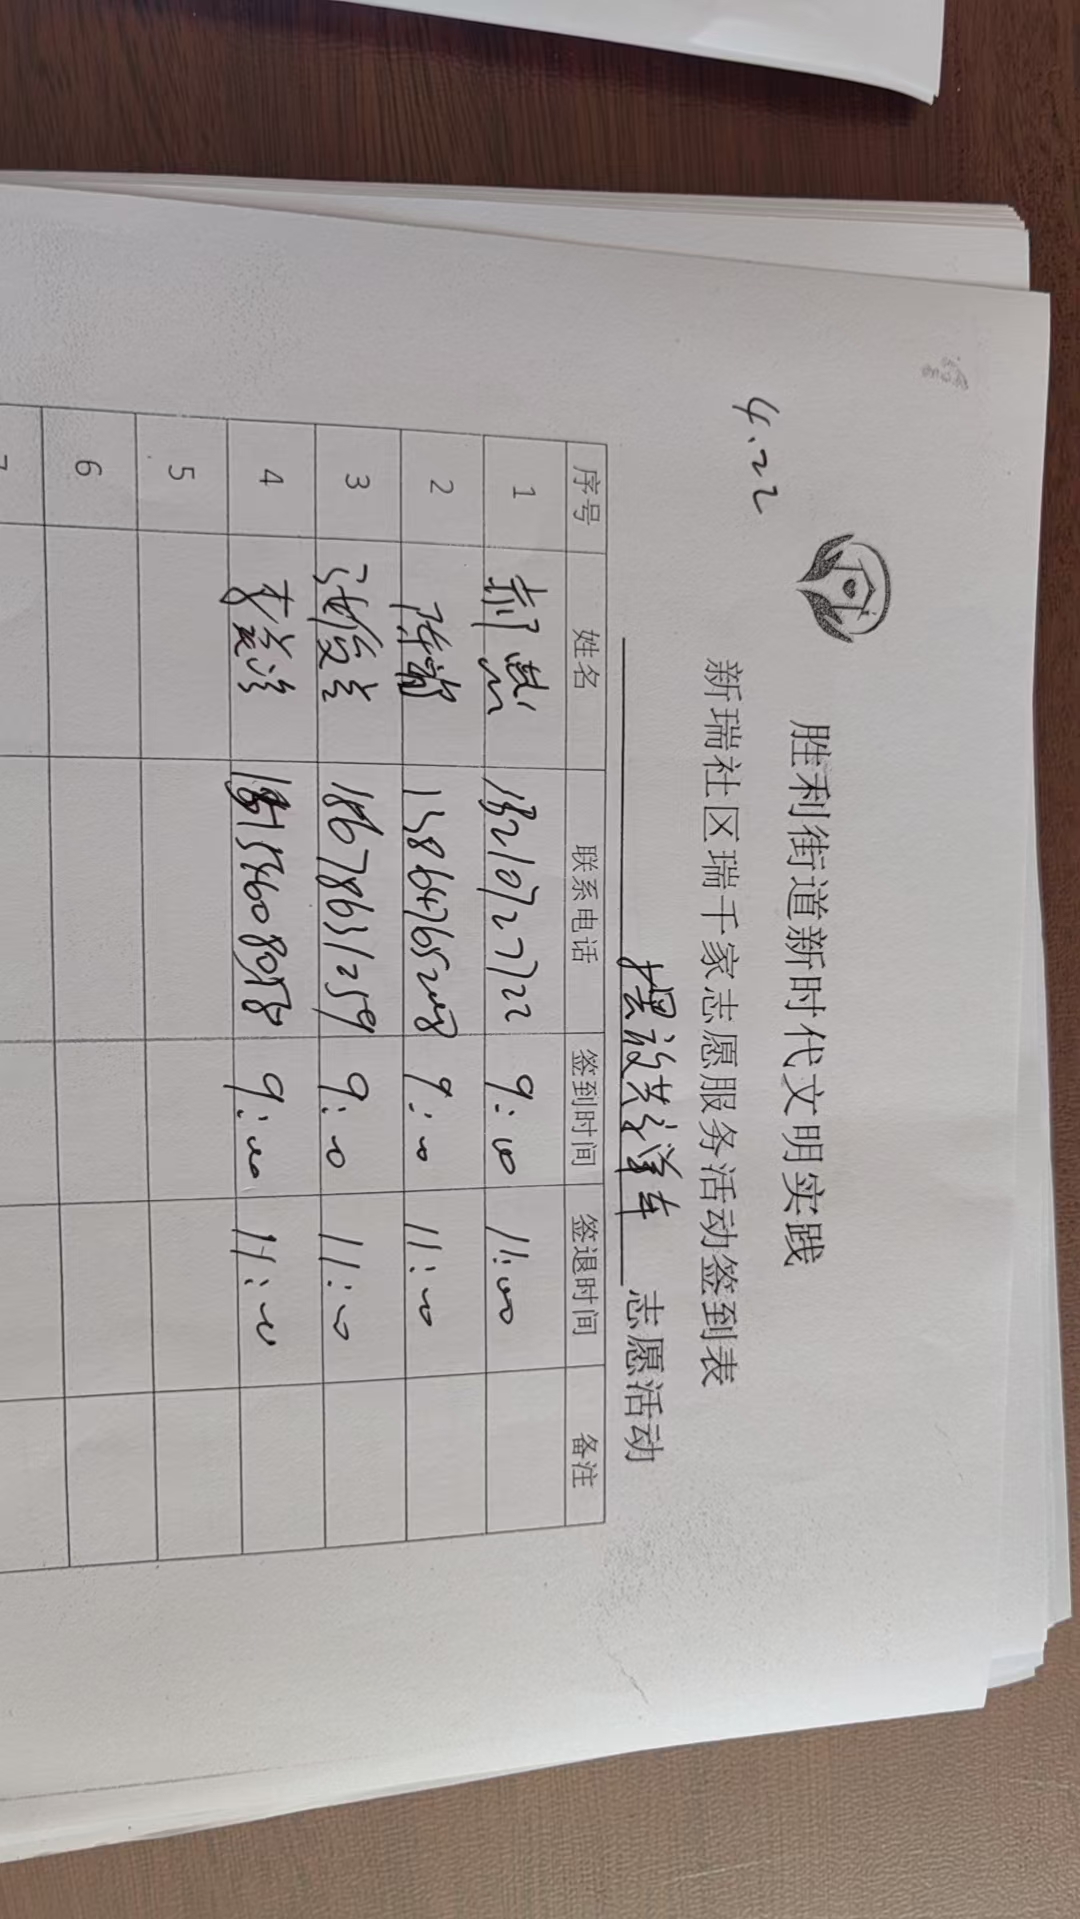 4.22
胜利街道新时代文明实践
新瑞社区瑞千家志愿服务活动签到表
摆放共享单车 志愿活动
序号 姓名 联系电话 签到时间 签退时间 备注
1 郝慧 9:00 11:00
2 陈 9:00 11:00
3 张俊兰 18678631259 9:00 11:00
4 李 9:00 11:00
5
6
7